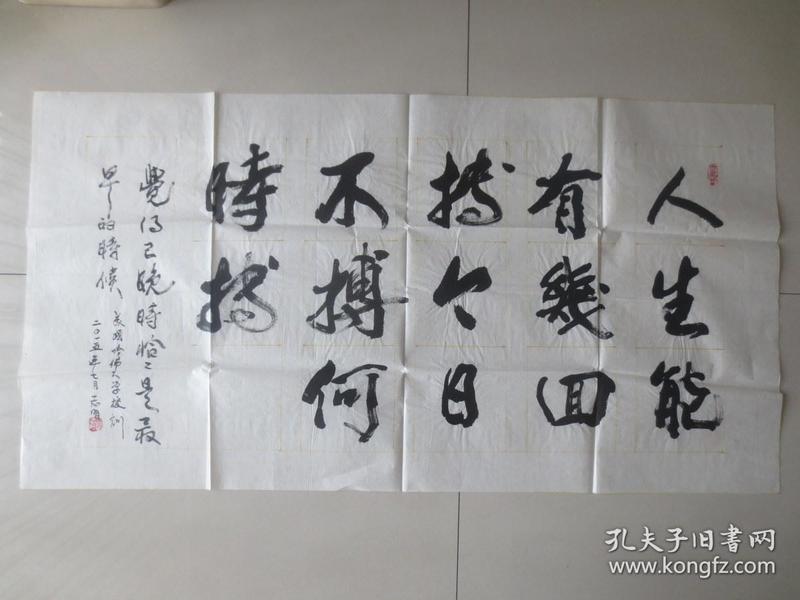 人生能
有幾回
搏今日
不搏何
時搏
覺得已晚時恰恰是最
早的時候
美國哈佛大學校訓
二〇一五年七月
孔夫子旧书网
www.kongfz.com